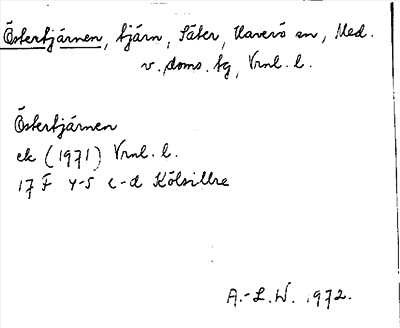 Östertjärnen, tjärn, Säter, Haverö sn, Med.
v. doms. tg, Vrnl. l.
Östertjärnen
ek (1971) Vrnl. l.
17 F 4-5 c-d Kölsillre
A.-L.W. 1972.